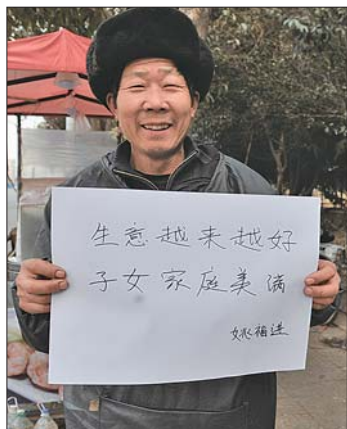 生意越来越好
子女家庭美满
姚福进